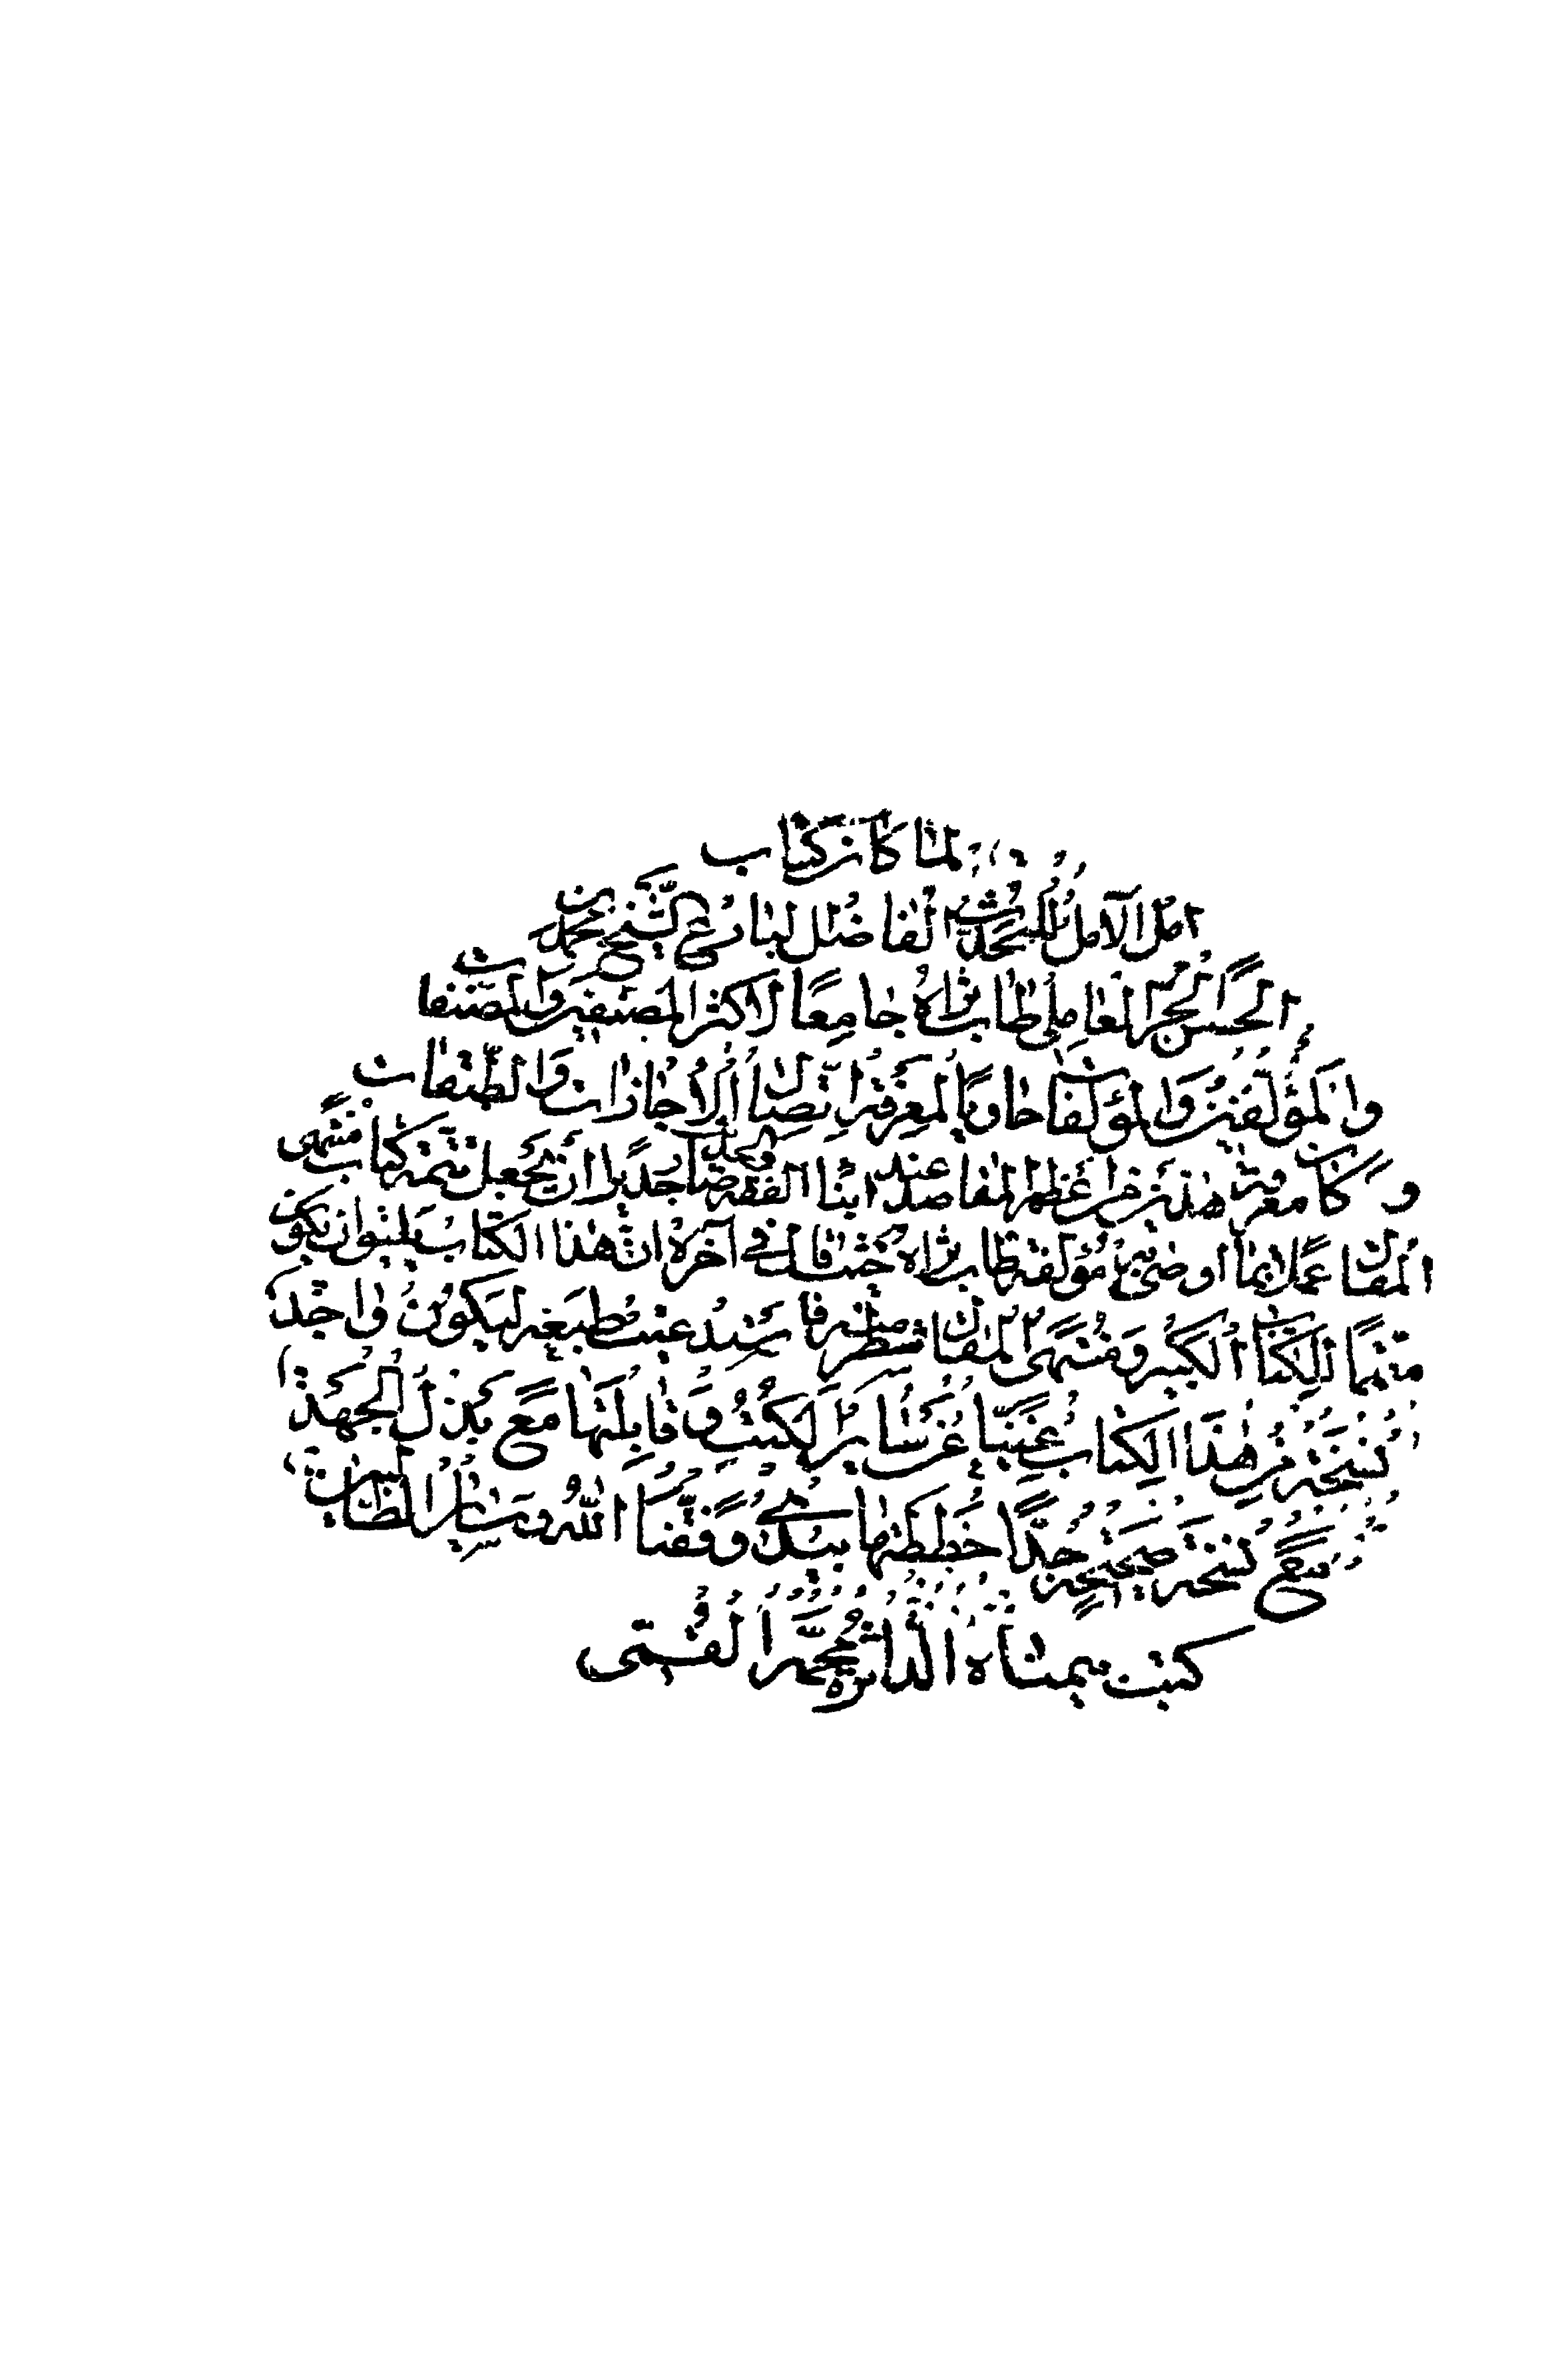 لما كان كتاب
امل الآمل للمحدث الفاضل البارع الشيخ محمد بن
الحسن الحر العاملي طاب ثراه جامعا لاكثر المصنفين والمصنفات
والمؤلفين والمؤلفات حاويا لمعرفة اتصال الاجازات والطبقات
وكان معرفة هذين من اعظم المقاصد عند ابناء الفقه جديرا ان يجعل تتمة كتاب منتهى
المقال عملا بما اوصى به مؤلفه طاب ثراه حيث قال في آخره ان هذا الكتاب ينبغي ان يكون
متمما للكتاب الكبير ومنتهى المقال شطر منه طبعته ليكون واجد
نسخة من هذا الكتاب غنيا عن سائر الكتب وقابلتها مع بذل الجهد
مع نسخة صحيحة جدا خططتها بيدي وفقنا الله وسائر الطالبين
كتبت بيمناه الداثرة محمد القمي